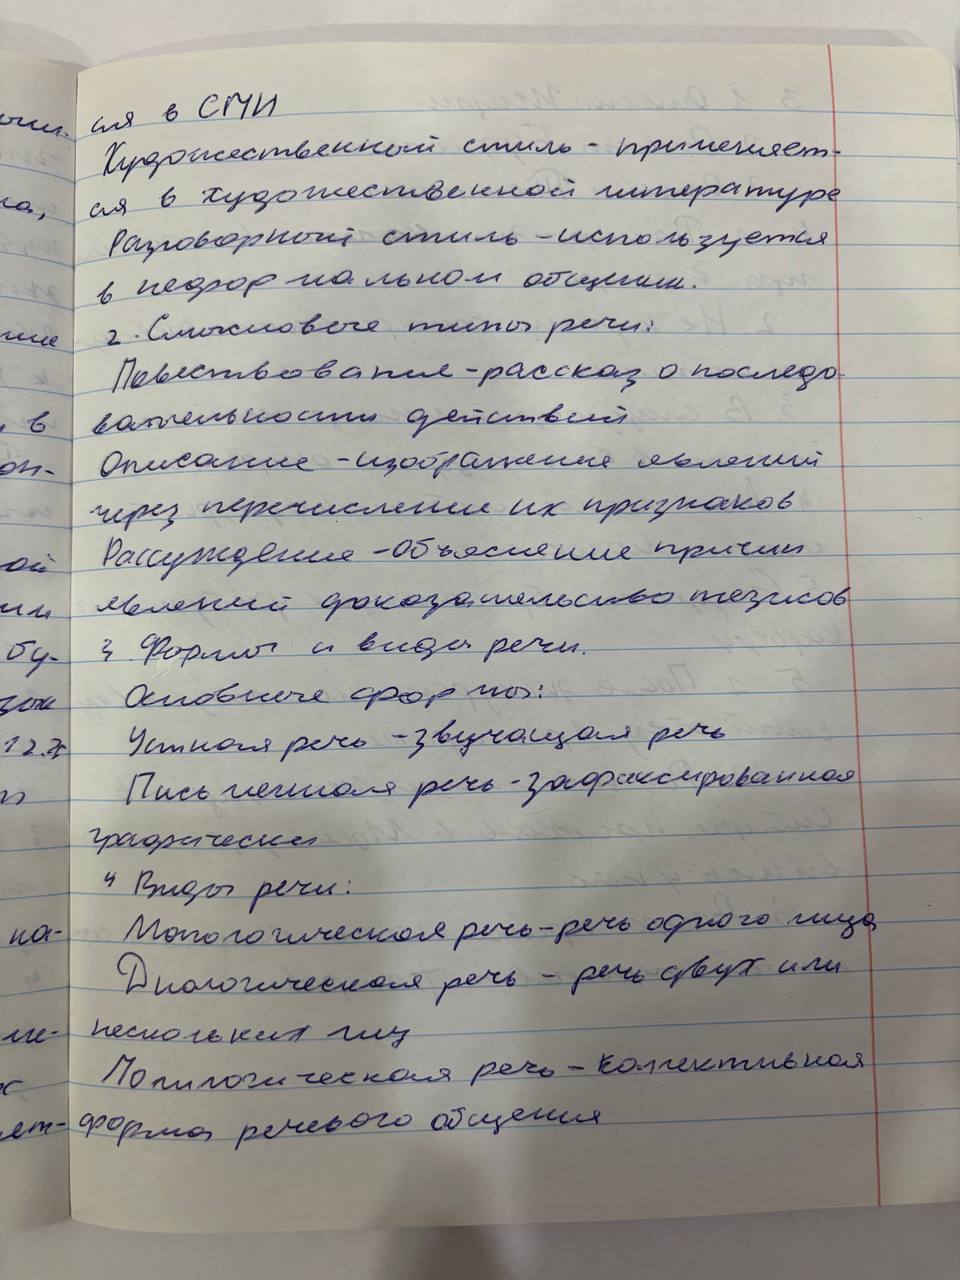 ся в СМИ
Художественный стиль - применяет-
ся в художественной литературе
Разговорный стиль - используется
в неформальном общении.
2. Смысловые типы речи:
Повествование - рассказ о последо-
вательности действий
Описание - изображение явлений
через перечисление их признаков
Рассуждение - объяснение причин
явлений доказательство тезисов
3 Формы и виды речи.
Основные формы:
Устная речь - звучащая речь
Письменная речь - зафиксированная
графически
4 Виды речи:
Монологическая речь - речь одного лица
Диалогическая речь - речь двух или
нескольких лиц
Полилогическая речь - коллективная
форма речевого общения